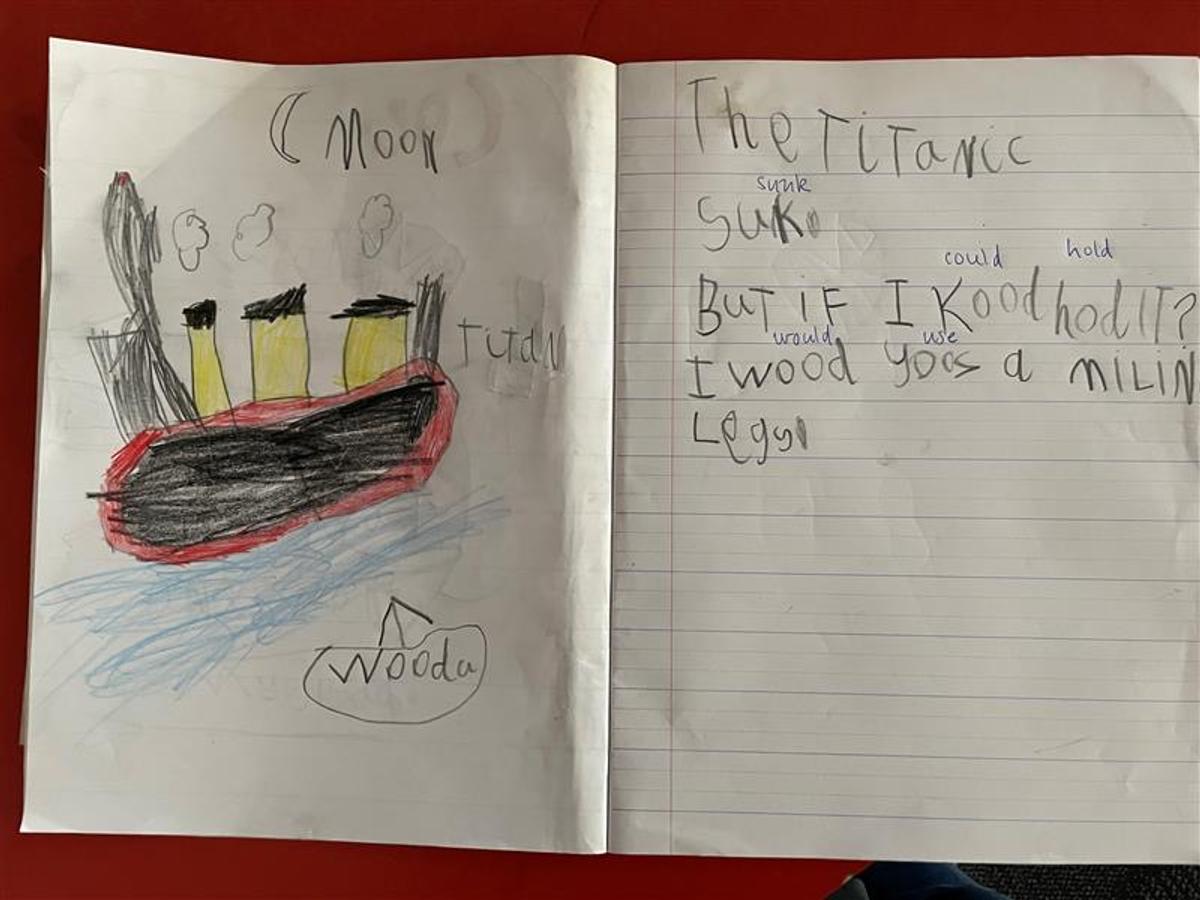 Moon
Titan
Wooda
The TiTanic
sunk
Suk
could hold
BuT iF I Kood hod IT?
would use
I wood yoos a miLiN
Legs